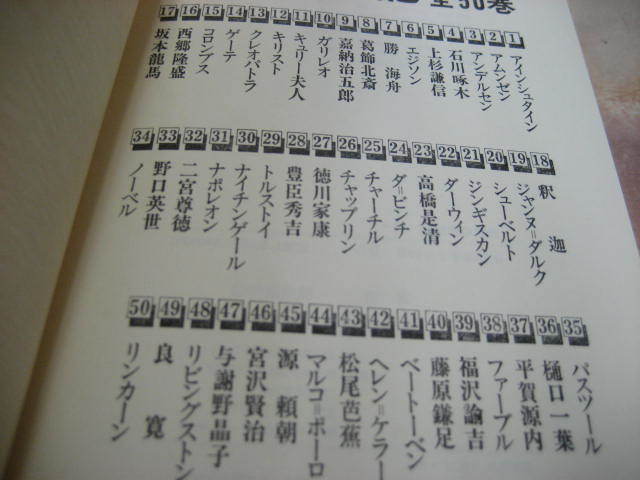 全50巻
1 アインシュタイン
2 アムンゼン
3 アンデルセン
4 石川啄木
5 上杉謙信
6 エジソン
7 勝海舟
8 葛飾北斎
9 嘉納治五郎
10 ガリレオ
11 キュリー夫人
12 キリスト
13 クレオパトラ
14 ゲーテ
15 コロンブス
16 西郷隆盛
17 坂本龍馬
18 釈迦
19 ジャンヌ=ダルク
20 シューベルト
21 ジンギスカン
22 ダーウィン
23 高橋是清
24 ダ=ビンチ
25 チャーチル
26 チャップリン
27 徳川家康
28 豊臣秀吉
29 トルストイ
30 ナイチンゲール
31 ナポレオン
32 二宮尊徳
33 野口英世
34 ノーベル
35 パスツール
36 樋口一葉
37 平賀源内
38 ファーブル
39 福沢諭吉
40 藤原鎌足
41 ベートーベン
42 ヘレン=ケラー
43 松尾芭蕉
44 マルコ=ポーロ
45 源頼朝
46 宮沢賢治
47 与謝野晶子
48 リビングストン
49 良寛
50 リンカーン